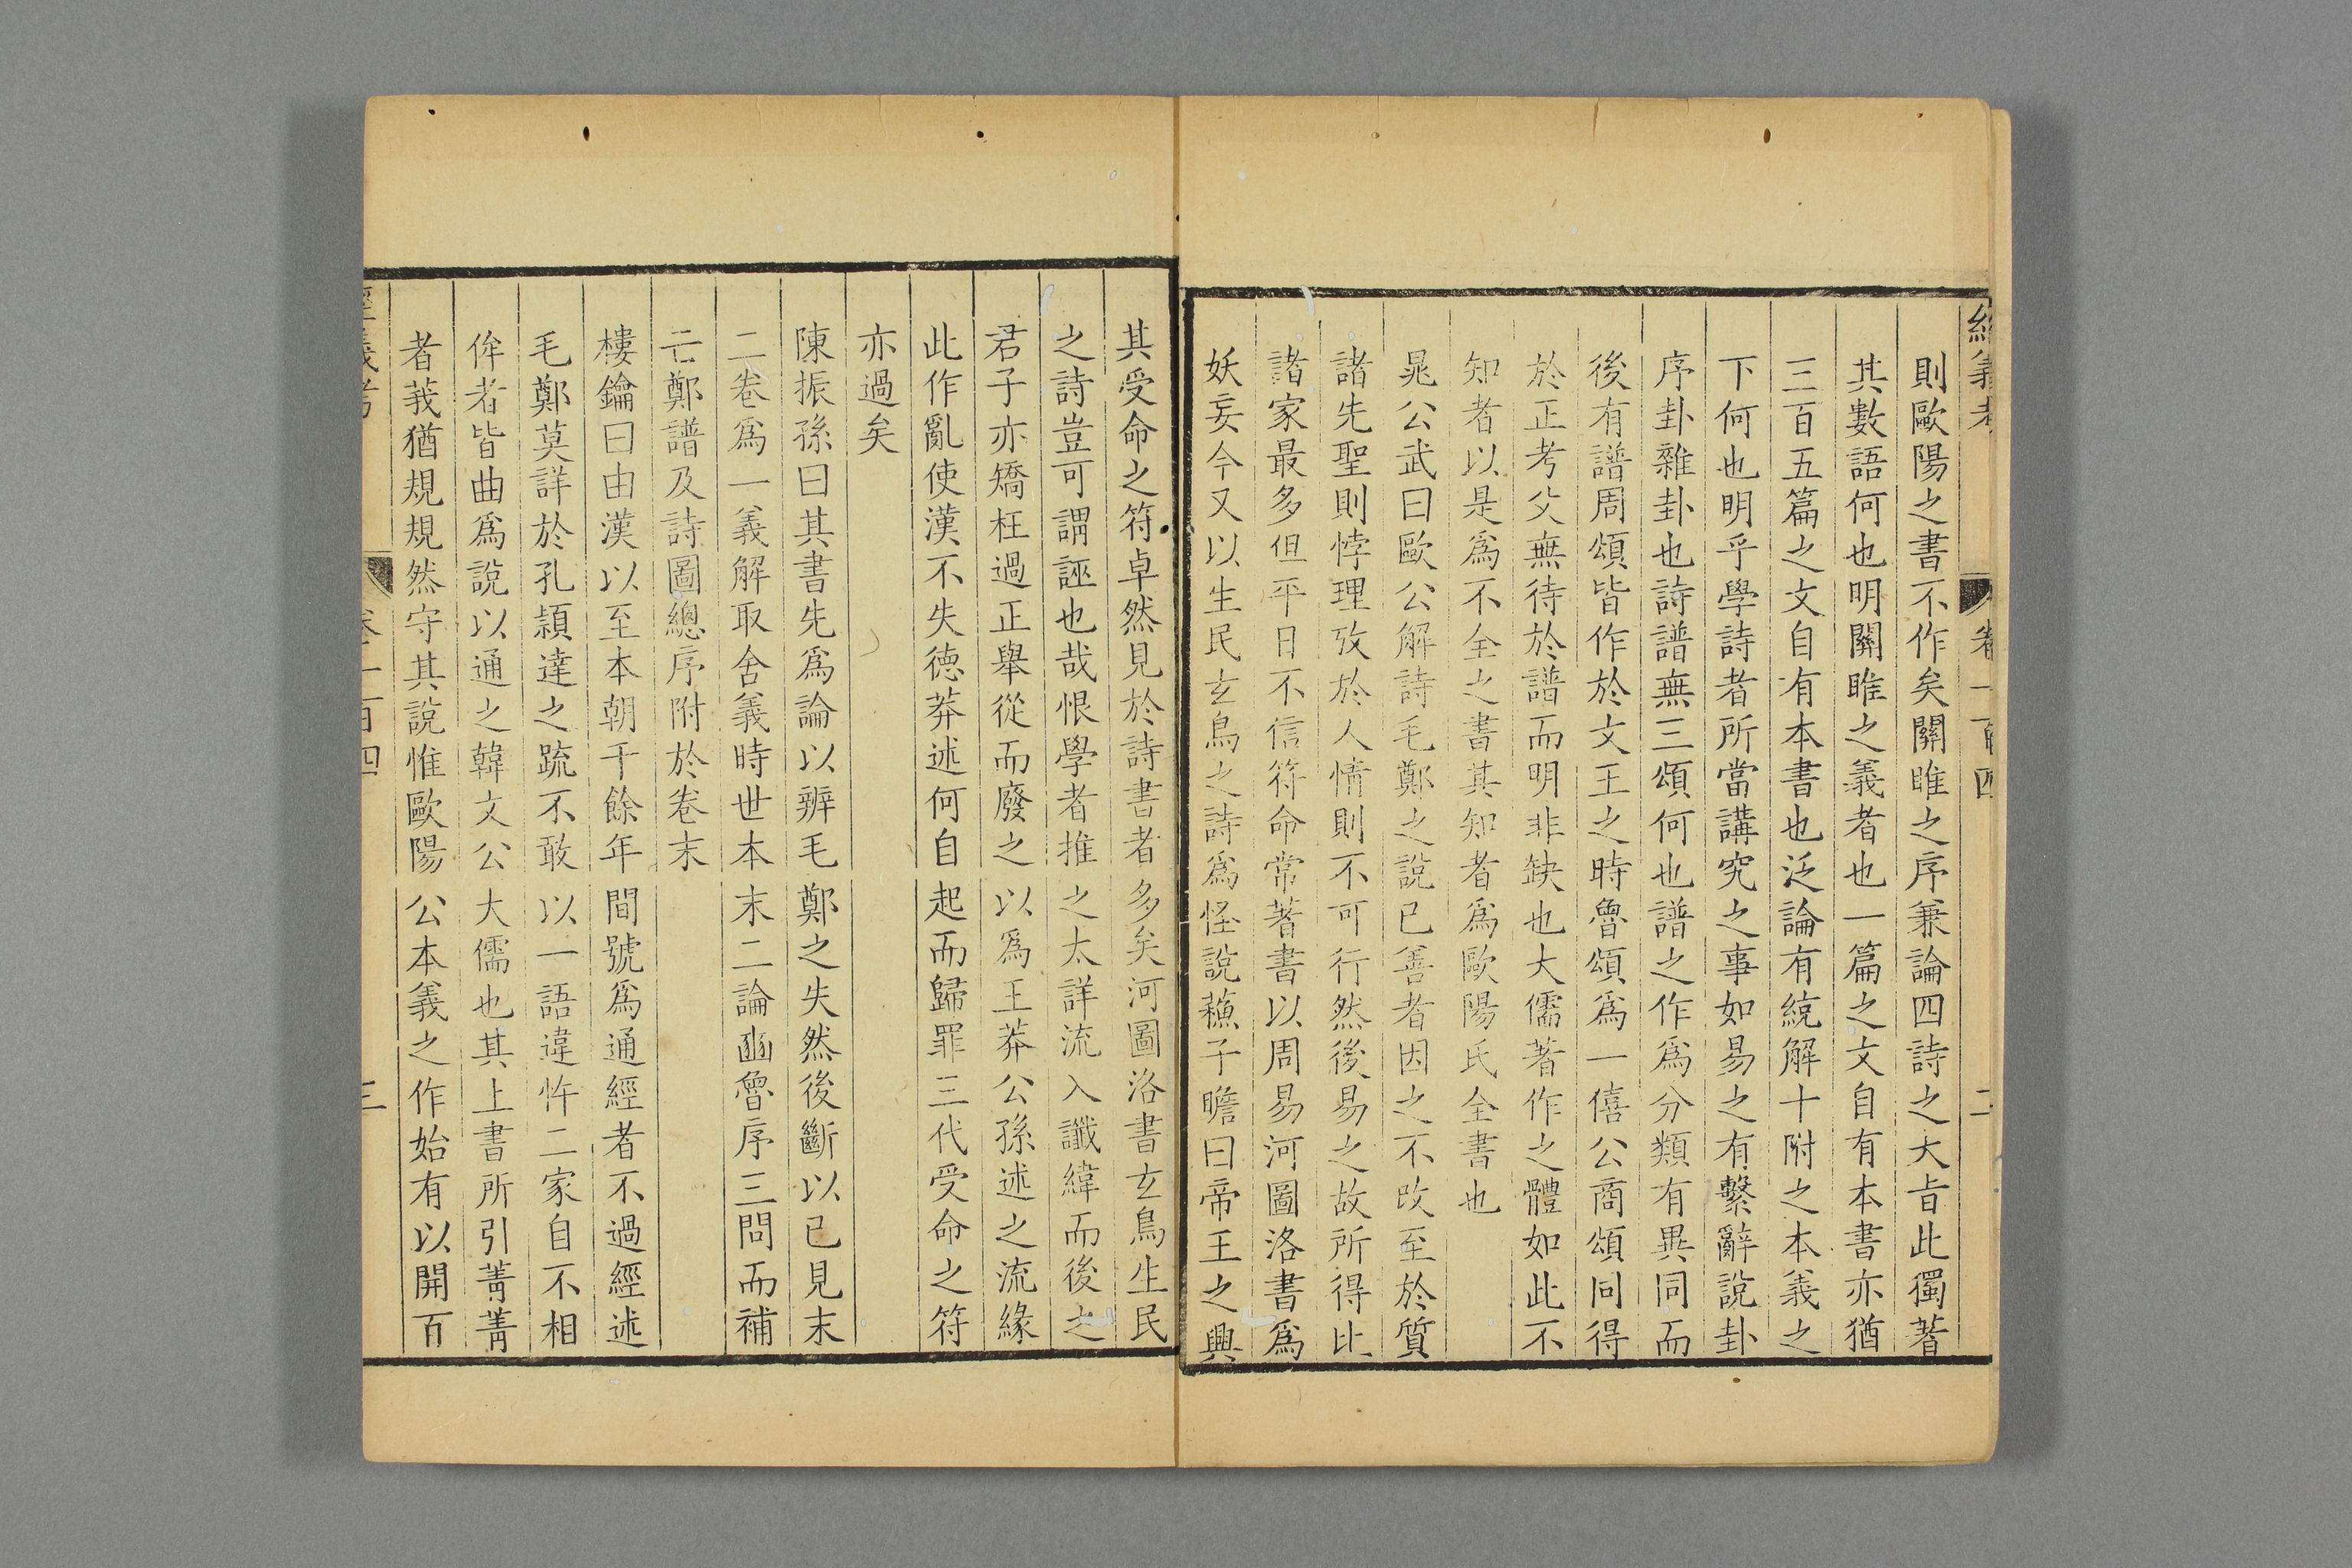 經義考 卷一百四 二
則歐陽之書不作矣關睢之序兼論四詩之大旨此獨著
其數語何也明關睢之義者也一篇之文自有本書亦猶
三百五篇之文自有本書也泛論有統解十附之本義之
下何也明乎學詩者所當講究之事如易之有繫辭說卦
序卦雜卦也詩譜無三頌何也譜之作爲分類有異同而
後有譜周頌皆作於文王之時魯頌爲一僖公商頌同得
於正考父無待於譜而明非缺也大儒著作之體如此不
知者以是爲不全之書其知者爲歐陽氏全書也
晁公武曰歐公解詩毛鄭之說已善者因之不改至於質
諸先聖則悖理攷於人情則不可行然後易之故所得比
諸家最多但平日不信符命常著書以周易河圖洛書爲
妖妄今又以生民玄鳥之詩爲怪說蘓子瞻曰帝王之興
其受命之符卓然見於詩書者多矣河圖洛書玄鳥生民
之詩豈可謂誣也哉恨學者推之太詳流入讖緯而後之
君子亦矯枉過正舉從而廢之以爲王莽公孫述之流緣
此作亂使漢不失德莽述何自起而歸罪三代受命之符
亦過矣
陳振孫曰其書先爲論以辨毛鄭之失然後斷以已見末
二卷爲一義解取舍義時世本末二論豳魯序三問而補
亡鄭譜及詩圖總序附於卷末
樓鑰曰由漢以至本朝千餘年間號爲通經者不過經述
毛鄭莫詳於孔穎達之疏不敢以一語違忤二家自不相
侔者皆曲爲說以通之韓文公大儒也其上書所引菁菁
者莪猶規規然守其說惟歐陽公本義之作始有以開百
經義考 卷一百四 三